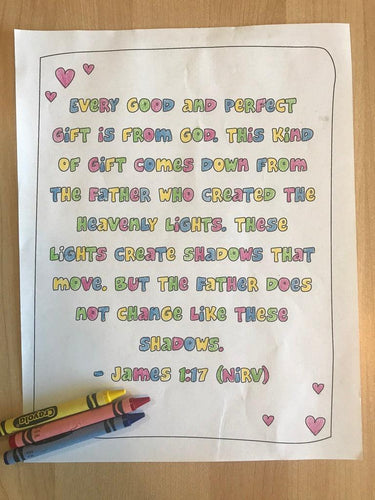 Every good and perfect
gift is from God. This kind
of gift comes down from
the Father who created the
heavenly lights. These
lights create shadows that
move. But the Father does
not change like these
shadows.
- James 1:17 (NIRV)
Crayola